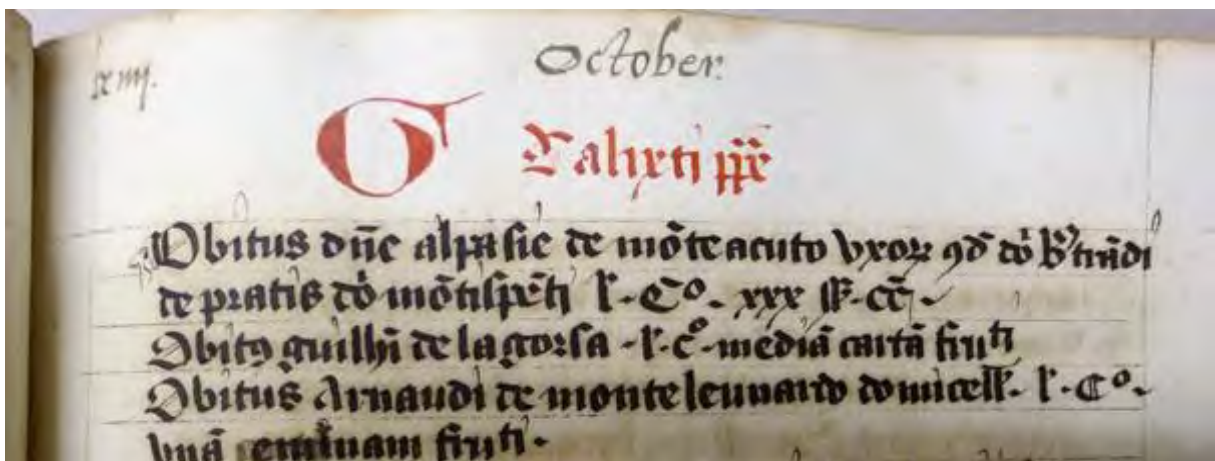 October
G Calixti pp̄e
Obitus dn̄e alpasie de mōte acuto vxor ꝯd dn̄i
de pratis dn̄i mōtispēti l. Cº. xxx ff. CC
Obitꝰ guilhi de la gorsa - l. cº. mediā cartā fru̅ti
Obitus Arnaudi de monteleunardo domicell. l. Cº.
vnā eminam fruti.